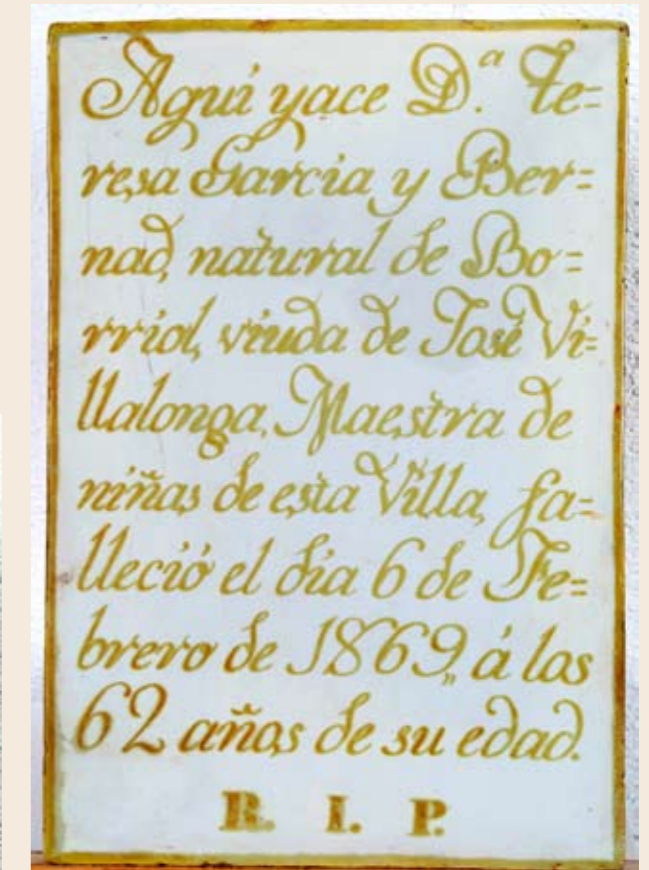 Aqui yace D.ª Te=
resa Garcia y Ber=
nad, natural de Bo=
rriol, viuda de José Vi=
llalonga, Maestra de
niñas de esta Villa, fa=
lleció el dia 6 de Fe=
brero de 1869,, á los
62 años de su edad.
R. I. P.